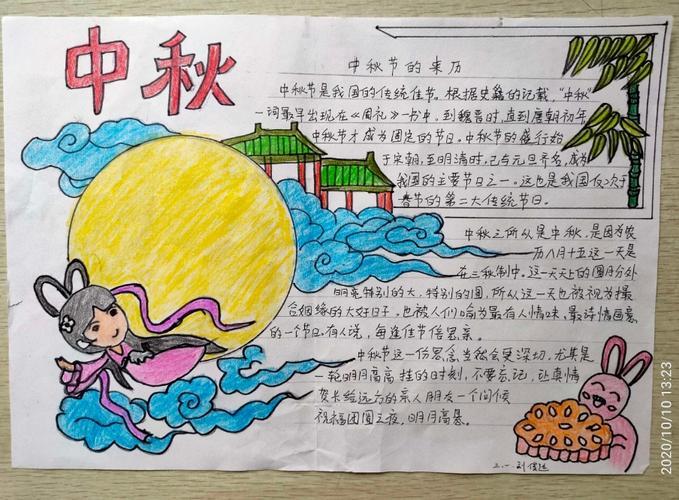 中秋
中秋节的来历
中秋节是我国的传统佳节。根据史籍的记载，“中秋”
一词最早出现在《周礼》一书中。到魏晋时，直到唐朝初年
中秋节才成为固定的节日。中秋节的盛行始
于宋朝，至明清时，已与元旦齐名，成为
我国的主要节日之一。这也是我国仅次于
春节的第二大传统节日。
中秋之所以是中秋，是因为农
历八月十五这一天是
在三秋制中。这一天天上的圆月分外
明亮特别的大，特别的圆，所以这一天也被视为撮
合姻缘的大好日子。也被人们喻为最有人情味，最诗情画意
的一个节日。有人说，每逢佳节倍思亲。
中秋节这一份思念当然会更深切，尤其是
一轮明月高高挂的时刻，不要忘记，让真情
祝福团圆之夜，明月高悬。
2020/10/10 13:23